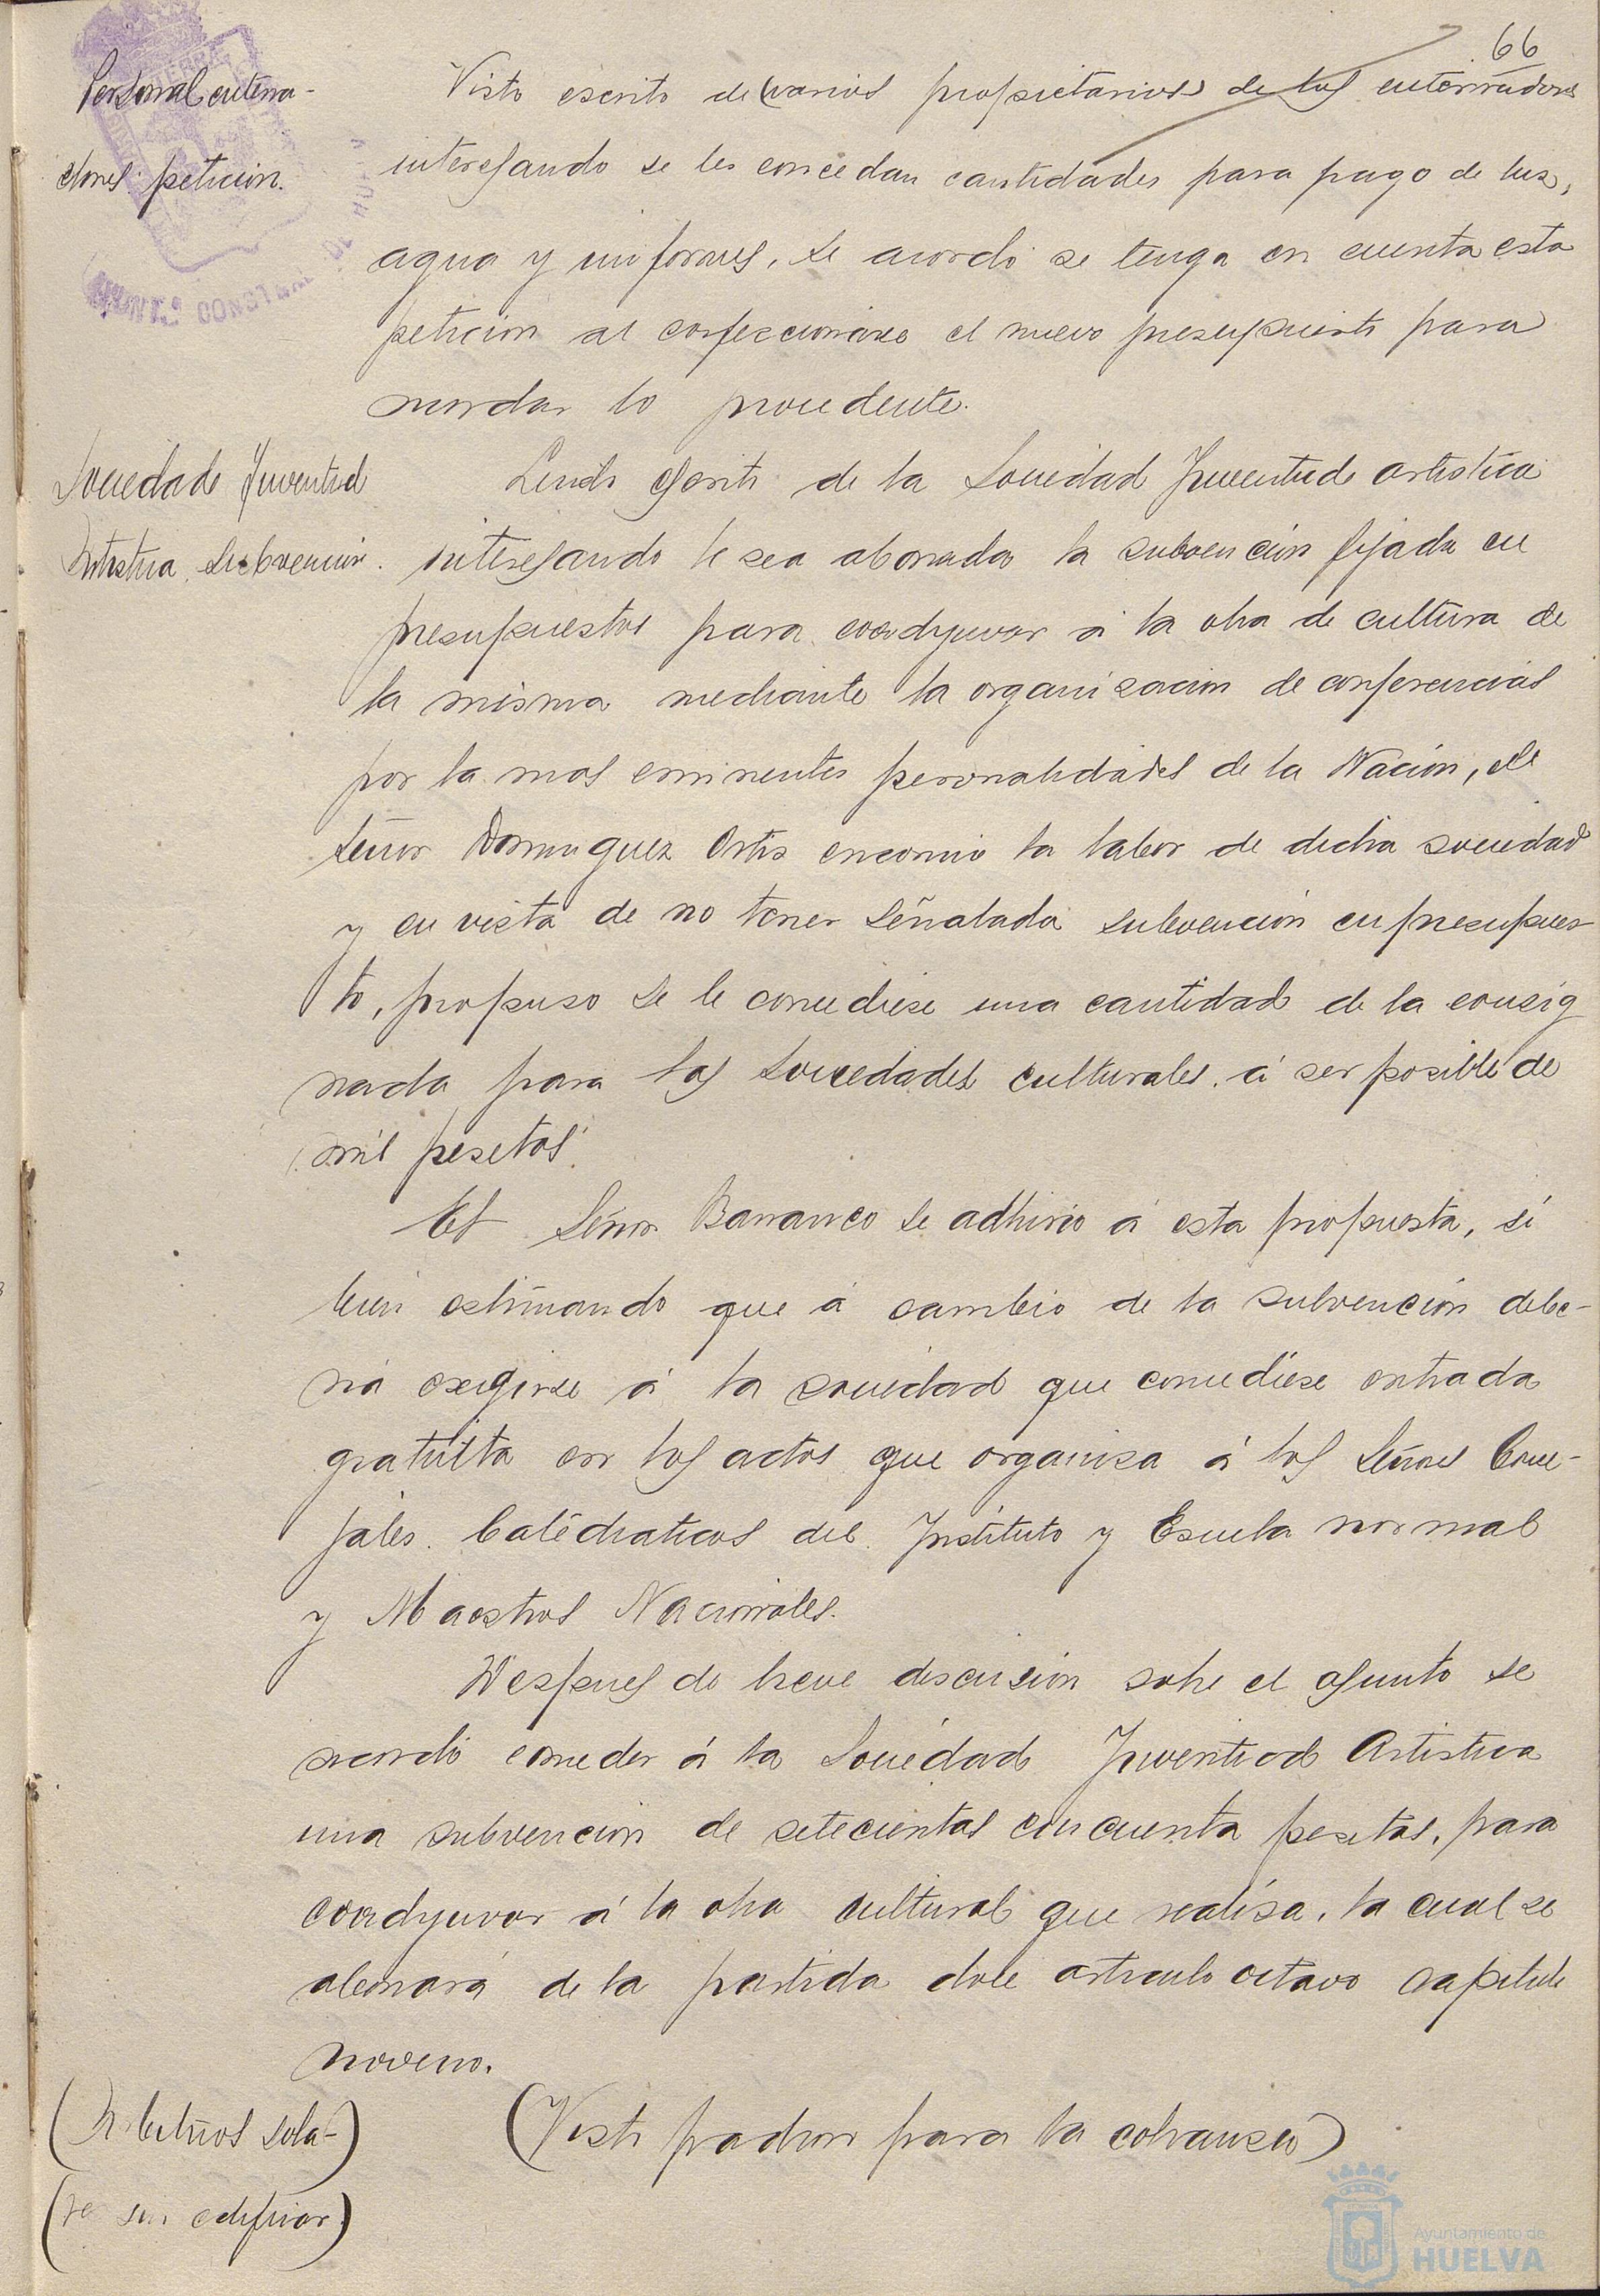 66
Personal enterra-
dores petición.
Visto escrito de varios propietarios de los enterradores
interesando se les concedan cantidades para pago de luz,
agua y uniformes, se acordó se tenga en cuenta esta
petición al confeccionarse el nuevo presupuesto para
acordar lo procedente.
Sociedad Juventud
Artística, subvención.
Leido escrito de la Sociedad Juventud artística
interesando le sea abonada la subvención fijada en
presupuestos para coadyuvar á la obra de cultura de
la misma mediante la organizacion de conferencias
por la mas eminentes personalidades de la Nación, el
Señor Dominguez Ortiz encomió la labor de dicha sociedad
y en vista de no tener señalada subvención en presupues-
to, propuso se le concediese una cantidad de la consig
nada para las Sociedades culturales, á ser posible de
mil pesetas.
El Señor Barranco se adhirió á esta propuesta, si
bien estimando que á cambio de la subvención debe-
ría exigirse á la sociedad que concediese entrada
gratuita en los actos que organiza á los Señores Conce-
jales. Catédraticos del Instituto y Escuela normal
y Maestros Nacionales.
Despues de breve discusión sobre el asunto se
acordó conceder á la Sociedad Juventud Artistica
una subvencion de setecientas cincuenta pesetas, para
coadyuvar á la obra cultural que realiza, la cual se
abonará de la partida doce artículo octavo capitulo
noveno.
(Arbitrios sola-)
(res sin edificar)
(Visto padron para la cobranza)
AYUNTº CONSTNAL DE HUELVA
Ayuntamiento de
HUELVA